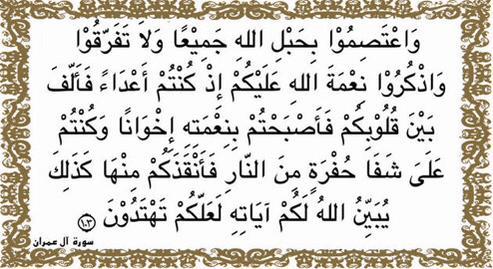 وَاعْتَصِمُوْا بِحَبْلِ اللهِ جَمِيْعًا وَلَا تَفَرَّقُوْا
وَاذْكُرُوْا نِعْمَةَ اللهِ عَلَيْكُمْ إِذْ كُنْتُمْ أَعْدَاءً فَأَلَّفَ
بَيْنَ قُلُوْبِكُمْ فَأَصْبَحْتُمْ بِنِعْمَتِهِ إِخْوَانًا وَكُنْتُمْ
عَلَىٰ شَفَا حُفْرَةٍ مِنَ النَّارِ فَأَنْقَذَكُمْ مِنْهَا كَذَلِكَ
يُبَيِّنُ اللهُ لَكُمْ آيَاتِهِ لَعَلَّكُمْ تَهْتَدُوْنَ ١٠٣
سورة آل عمران